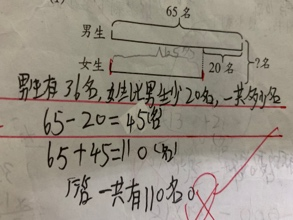 65名
男生
女生
45
20名
?名
男生有36名,女生比男生少20名,一共多少名
65-20=45名
65+45=110(名)
答一共有110名。